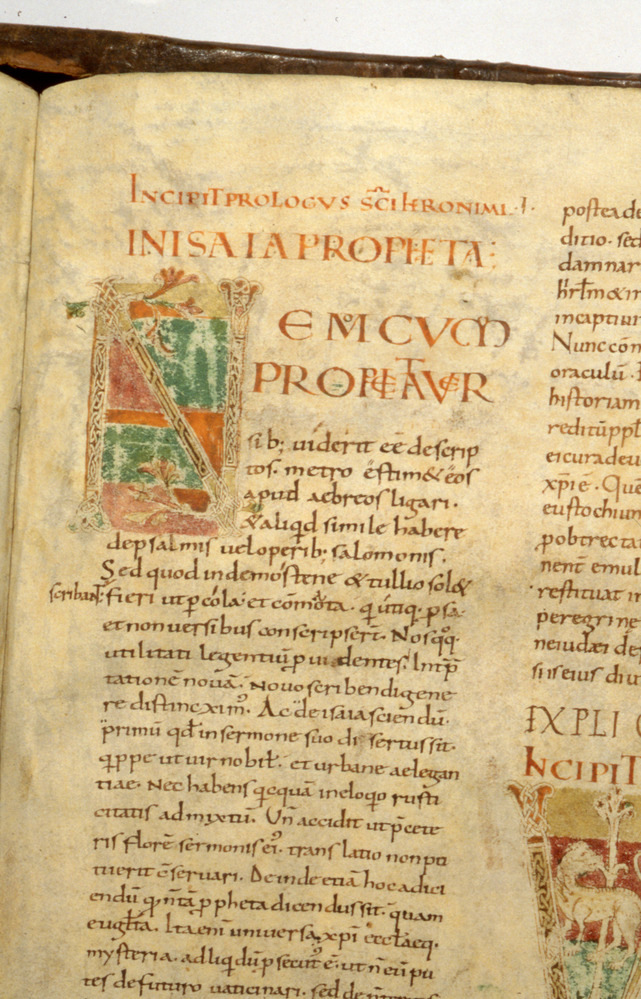 INCIPIT PROLOGUS SCI HERONIMI
IN ISAIA PROPHETA:
NEMO CUM
PROPHETAS VER
sib; uiderit eē descrip
tos. metro ēstim& eos
apud aebreos ligari.
& aliqd simile habere
de psalmis uel operib; salomonis.
Sed quod in demostene & tullio sol&
scribant fieri ut p cola et cōmata. q utiq. psa
et non uersibus conscripsert. Nos qq.
utilitati legentiū puidentes. Int̄p
tationē nouā. Nouo scribendi gene
re distinximꝰ. Ac de isaia sciendū.
primū qd in sermone suo disertus sit.
qppe ut uir nobil. et urbane aelegan
tiae. Nec habens qcquā in eloqo rusti
citatis admyxtū. Un accidit ut p̄cete
ris florē sermonis eiꝰ. translatio non po
tuerit cōseruari. Deinde etiā hoc adici
endū q n̄ tā ppheta dicendus sit. quam
euglista. Ita eni uniuersa xpi eccleaeq.
mysteria. ad liqdū psecutꝰ ē. ut n̄ eū pu
tes de futuro uaticinari. sed de
postea de
ditio. sed
damnar
hrlm & in
in captiuit
Nunc con
oraculū.
historiam
reditū ppl
ei cura deui
xpi e. Que
eustochium
pobtrecta
nent emul
restituat in
peregrine
ne iudaei de
siis eius diu
EXPLI
INCIPIT